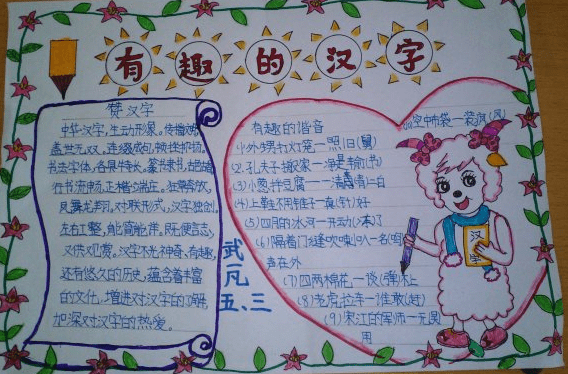 有趣的汉字
赞汉字
中华汉字,生动形象。传播文明,
盖世无双。连缀成句,顿挫抑扬。
书法字体,各具特长。篆书隶书,古朴端庄
行书流畅,正楷端庄。狂草奔放,
凤舞龙翔。对联形式,汉字独创。
左右工整,能简能详。既便言志,
又供观赏。汉字不光神奇、有趣,
还有悠久的历史,蕴含着丰富
的文化,增进对汉字的了解
加深对汉字的热爱。
武一凡
五、三
有趣的谐音
(1)外甥打灯笼—照旧(舅)
(2)孔夫子搬家—净是输(书)
(3)小葱拌豆腐—一清二白
(4)上鞋不用锥子—真(针)好
(5)四月的冰河—开动(冻)了
(6)隔着门缝吹喇叭—名(鸣)
声在外
(7)四两棉花—谈(弹)不上
(8)老虎拉车—谁敢(赶)
(9)宋江的军师—无(吴)
用
(10)空中布袋—装疯(风)
汉字